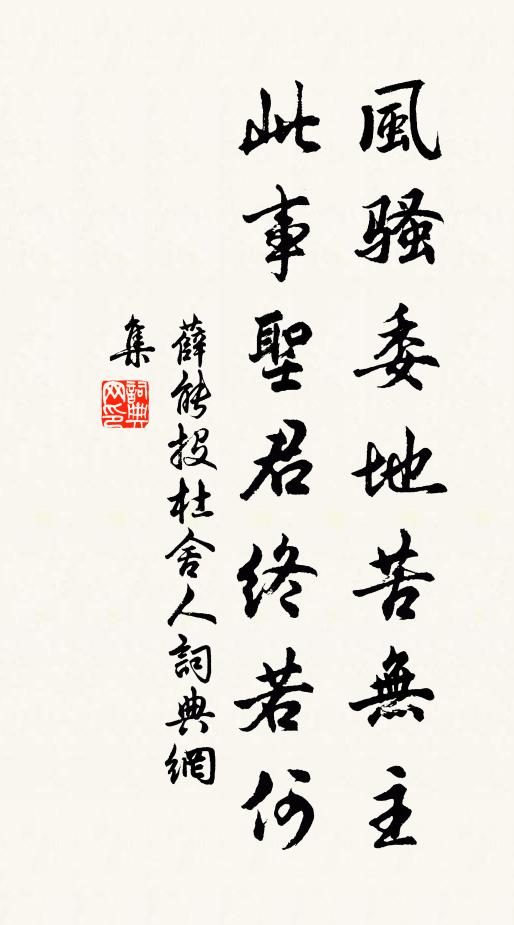 風騷委地苦無主
此事聖君終若何
薛能投杜舍人詞典網
集
詞典
网印